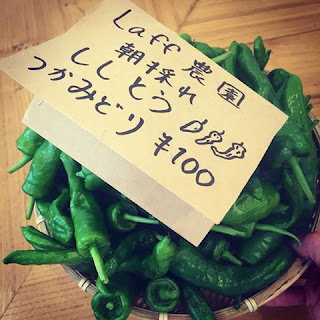 Laff 農園
朝採れ
ししとう
つかみどり ¥100